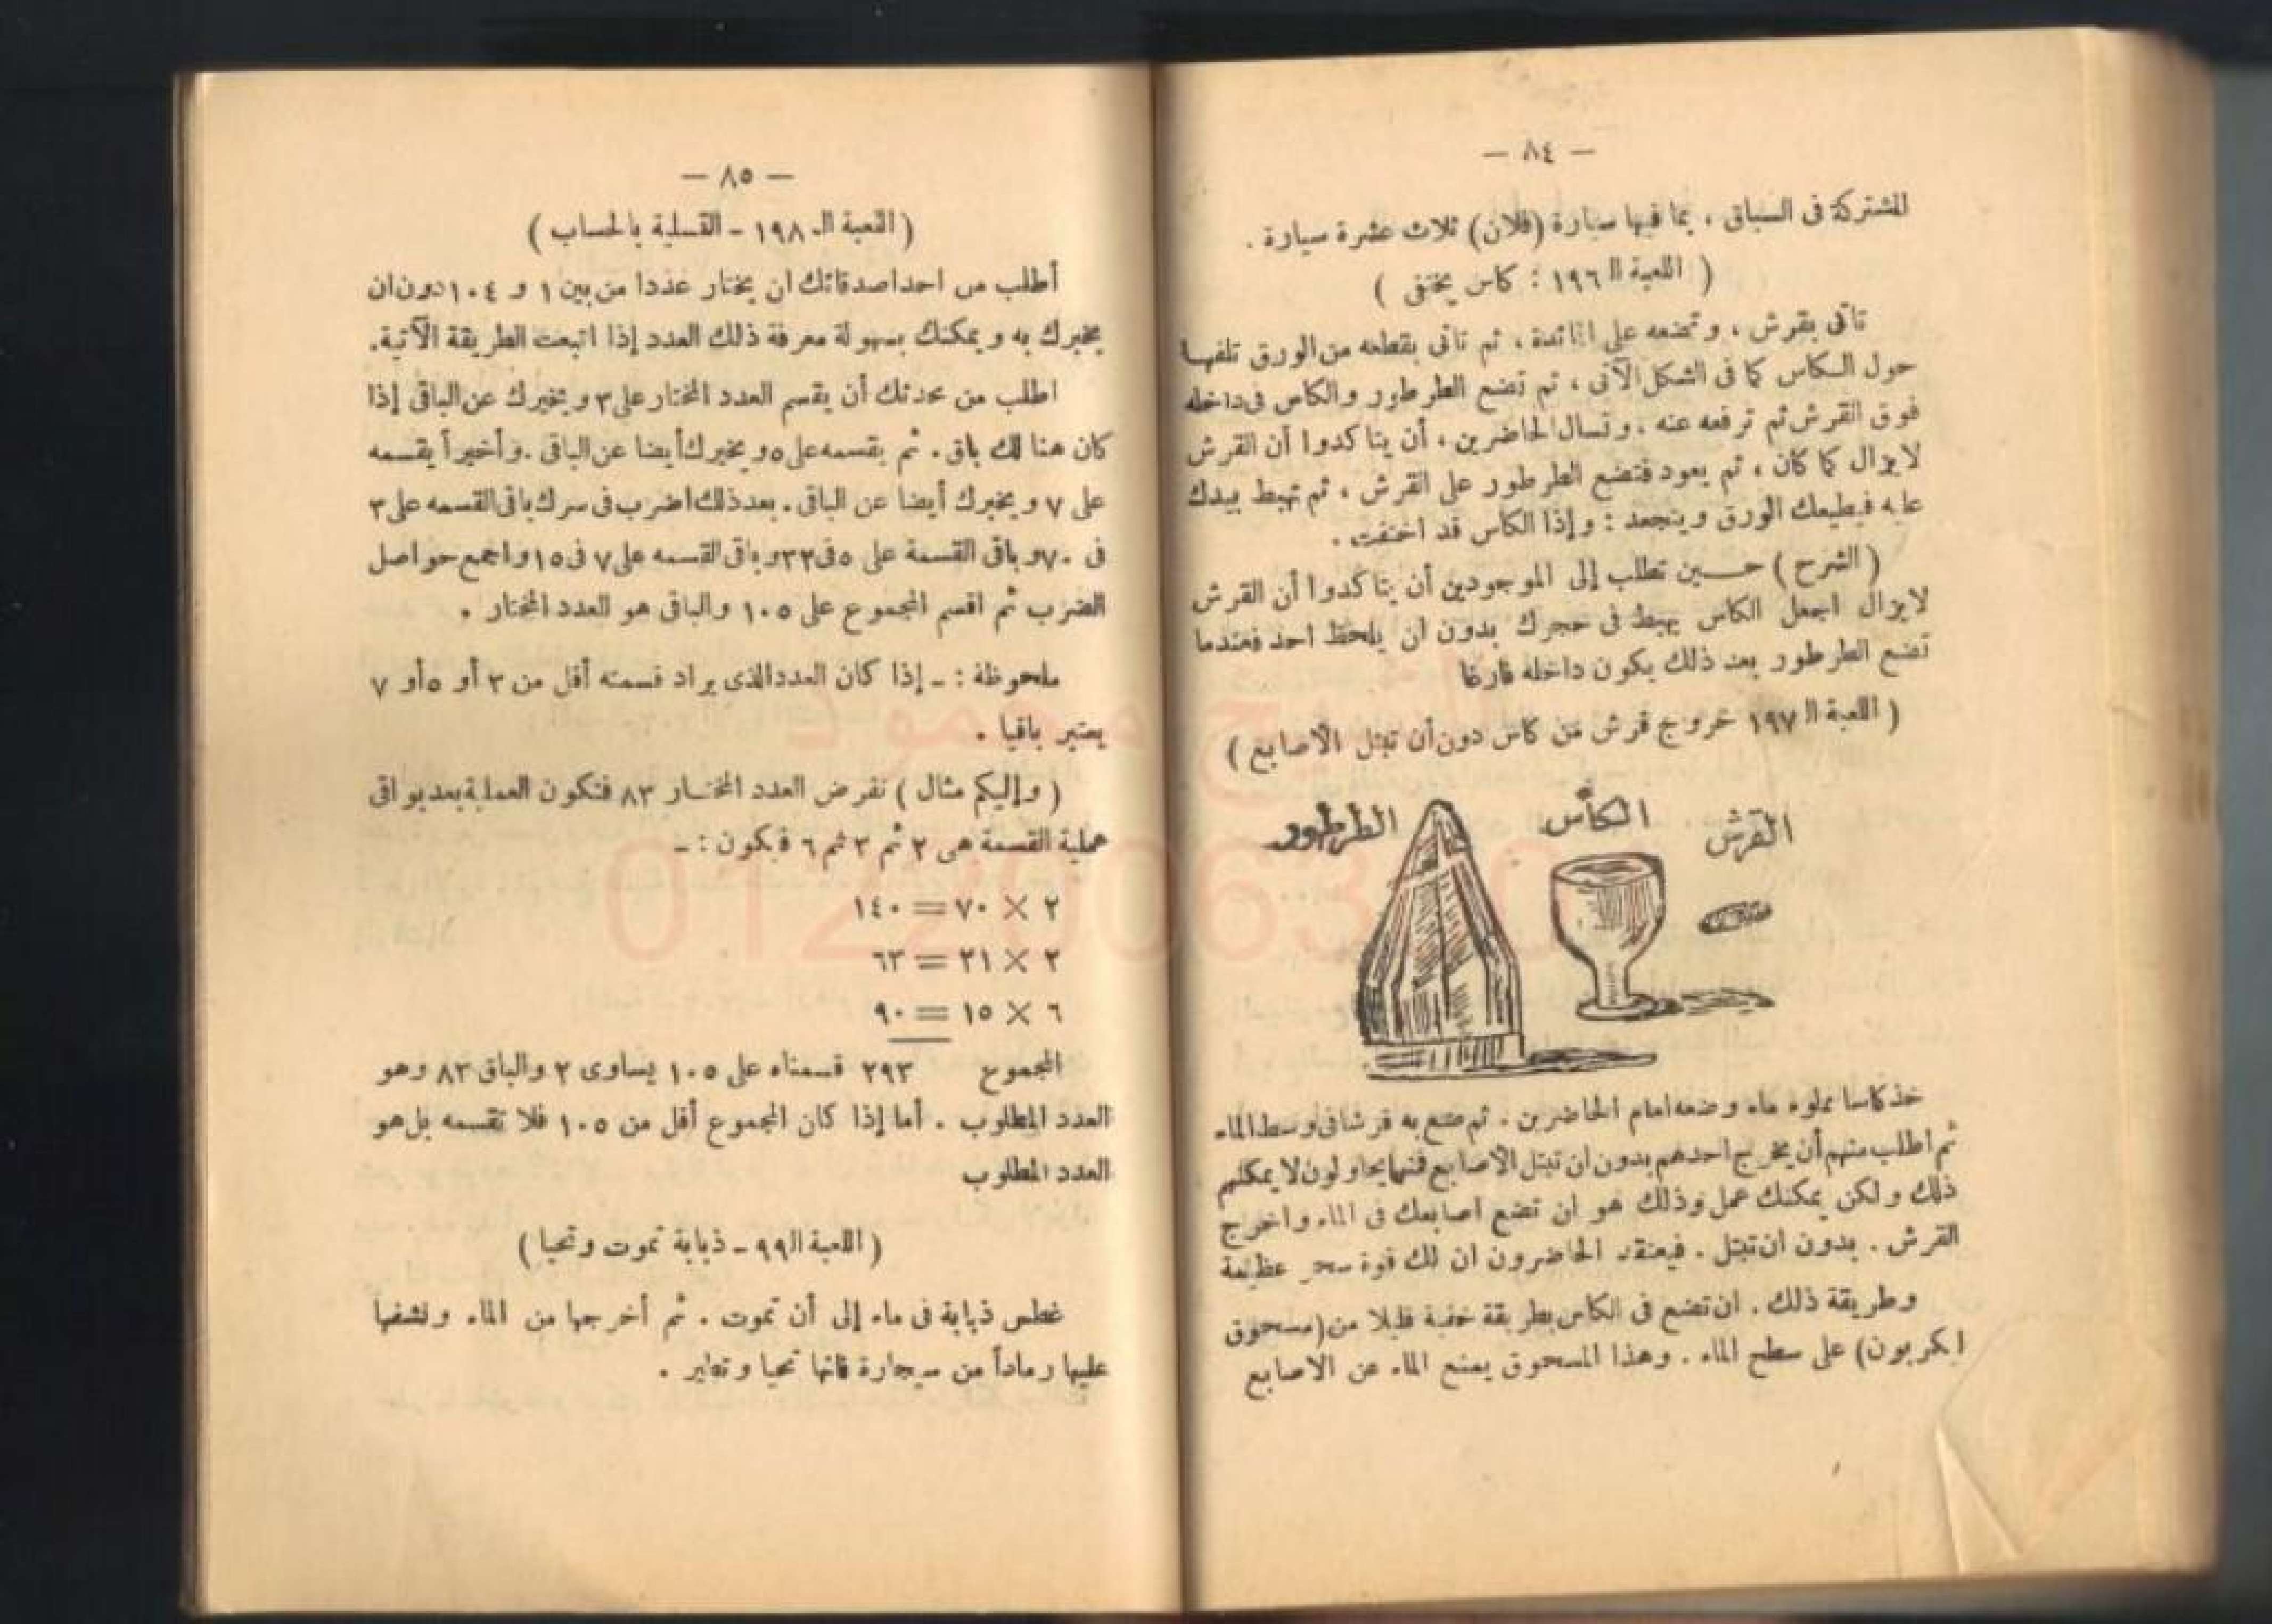 — ٨٤ —
المشتركة فى السباق ، بما فيها سيارة (فلان) ثلاث عشرة سيارة .
( اللعبة الـ ١٩٦ : كاس يختفى )
تاتى بقرش ، وتضعه على المائدة ، ثم تاتى بقطعه من الورق تلفهـا
حول الكاس كما فى الشكل الآتى ، ثم تضع الطرطور والكاس فى داخله
فوق القرش ثم ترفعه عنه ، وتسال الحاضرين ، أن يتاكدوا أن القرش
لايزال كما كان ، ثم يعود فتضع الطرطور على القرش ، ثم تهبط بيدك
عليه فيطيعك الورق وينجعد : وإذا الكاس قد اختفت .
( الشرح ) حـــين تطلب إلى الموجودين أن يتاكدوا أن القرش
لايزال اجعل الكاس يهبط فى حجرك بدون أن يلحظ احد فعندما
تضع الطرطور بعد ذلك يكون داخله فارغا
( اللعبة الـ ١٩٧ خروج قرش من كاس دون أن تبتل الاصابع )
الطرطور الكأس القرش
خذ كاسا مملوء ماء وضعه امام الحاضرين . ثم ضع به قرشا فى وسط الماء
ثم أطلب منهم أن يخرج احدهم بدون ان تبتل الاصابع فمهما يحاولون لا يمكنهم
ذلك ولكن يمكنك عمل وذلك هو ان تضع اصابعك فى الماء واخرج
القرش . بدون ان تبتل . فيعتقد الحاضرون ان لك قوة سحر عظيمة
وطريقة ذلك . ان تضع فى الكاس بطريقة خفية قليلا من (مسحوق
ابكربون) على سطح الماء . وهذا المسحوق يمنع الماء عن الاصابع
— ٨٥ —
( اللعبة الـ ١٩٨ - التسلية بالحساب )
أطلب من احد اصدقائك ان يختار عددا من بين ١ و ١٠٤ دون ان
يخبرك به ويمكنك بسهولة معرفة ذلك العدد إذا اتبعت الطريقة الآتية.
اطلب من محدثك أن يقسم العدد المختار على ٣ ويخبرك عن الباقى إذا
كان هنا لك باق . ثم يقسمه على ٥ ويخبرك أيضا عن الباقى . وأخيراً يقسمه
على ٧ ويخبرك أيضا عن الباقى . بعد ذلك اضرب فى سرك باقى القسمه على ٣
فى ٧٠ و باقى القسمة على ٥ فى ٢٢ و باقى القسمه على ٧ فى ١٥ واجمع حواصل
الضرب ثم اقسم المجموع على ١٠٥ والباقى هو العدد المختار .
ملحوظة : - إذا كان العدد الذى يراد قسمته أقل من ٣ أو ٥ أو ٧
يعتبر باقيا .
( وإليكم مثال ) نفرض العدد المختــار ٨٣ فتكون العملية بعد بواقى
عملية القسمة هى ٢ ثم ٣ ثم ٦ فيكون : -
٢ × ٧٠ = ١٤٠
٢ × ٢١ = ٦٣
٦ × ١٥ = ٩٠
المجموع ٢٩٣ قسمناه على ١٠٥ يساوى ٢ والباقى ٨٣ وهو
العدد المطلوب . أما إذا كان المجموع أقل من ١٠٥ فلا تقسمه بل هو
العدد المطلوب
( اللعبة الـ ٩٩ - ذبابة تموت وتحيا )
غطس ذبابة فى ماء إلى أن تموت . ثم أخرجها من الماء ونشفها
عليها رماداً من سيجارة فانها تحيا وتطير .